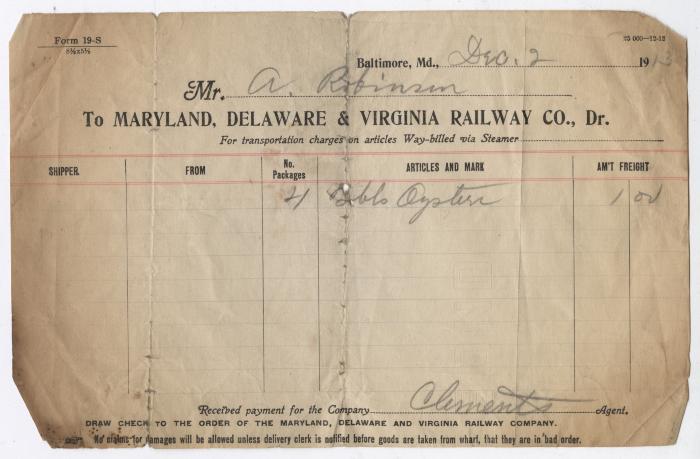 Form 19-S
8½x5½
25 000—12-12
Baltimore, Md., Dec. 2 1913
Mr. A. Robinson
To MARYLAND, DELAWARE & VIRGINIA RAILWAY CO., Dr.
For transportation charges on articles Way-billed via Steamer
SHIPPER FROM No. Packages ARTICLES AND MARK AM'T FREIGHT
4 Bbls Oysters 1 00
Received payment for the Company Clements Agent.
DRAW CHECK TO THE ORDER OF THE MARYLAND, DELAWARE AND VIRGINIA RAILWAY COMPANY.
No claims for damages will be allowed unless delivery clerk is notified before goods are taken from wharf, that they are in bad order.